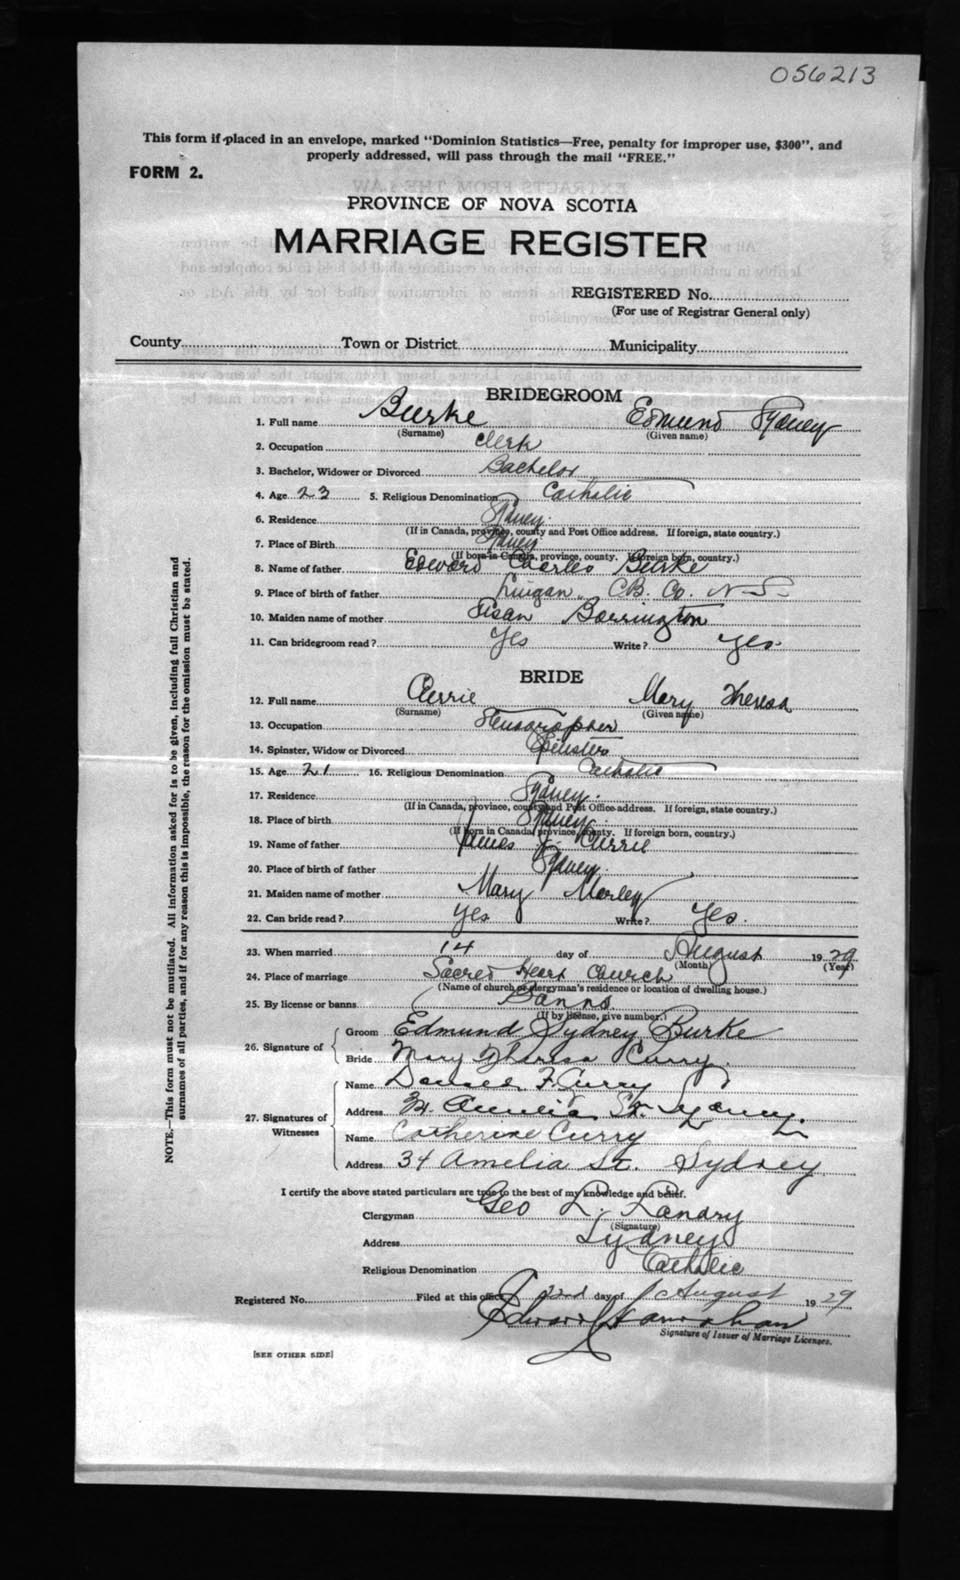 056213
This form if placed in an envelope, marked "Dominion Statistics—Free, penalty for improper use, $300", and
properly addressed, will pass through the mail "FREE."
FORM 2.
PROVINCE OF NOVA SCOTIA
MARRIAGE REGISTER
REGISTERED No.
(For use of Registrar General only)
County Town or District Municipality
BRIDEGROOM
1. Full name Burke Edmund Sydney
(Surname) (Given name)
2. Occupation Clerk
3. Bachelor, Widower or Divorced Bachelor
4. Age 23 5. Religious Denomination Catholic
6. Residence Sydney.
(If in Canada, province, county and Post Office address. If foreign, state country.)
7. Place of Birth Sydney
(If born in Canada, province, county. If foreign born, country.)
8. Name of father Edward Charles Burke
9. Place of birth of father Lingan, C.B. Co. N-S-
10. Maiden name of mother Susan Barrington
11. Can bridegroom read? Yes Write? Yes.
BRIDE
12. Full name Currie Mary Theresa
(Surname) (Given name)
13. Occupation Stenographer
14. Spinster, Widow or Divorced Spinster
15. Age 21 16. Religious Denomination Catholic
17. Residence Sydney.
(If in Canada, province, county and Post Office address. If foreign, state country.)
18. Place of birth Sydney.
(If born in Canada, province, county. If foreign born, country.)
19. Name of father James J. Currie
20. Place of birth of father Sydney.
21. Maiden name of mother Mary Morley
22. Can bride read? Yes Write? Yes.
23. When married 14 day of August 1929
(Month) (Year)
24. Place of marriage Sacred Heart Church
(Name of church or clergyman's residence or location of dwelling house.)
25. By license or banns Banns
(If by license, give number.)
26. Signature of
Groom Edmund Sydney Burke
Bride Mary Theresa Curry.
27. Signatures of Witnesses
Name Daniel F. Curry
Address 34 Amelia St. Sydney.
Name Catherine Curry
Address 34 Amelia St. Sydney.
I certify the above stated particulars are true to the best of my knowledge and belief.
Clergyman Geo L. Landry
(Signature)
Address Sydney
Religious Denomination Catholic
Registered No. Filed at this office 22nd day of August 1929
Edward Hanrahan
Signature of Issuer of Marriage Licenses.
[SEE OTHER SIDE]
NOTE.—This form must not be mutilated. All information asked for is to be given, including full Christian and
surnames of all parties, and if for any reason this is impossible, the reason for the omission must be stated.